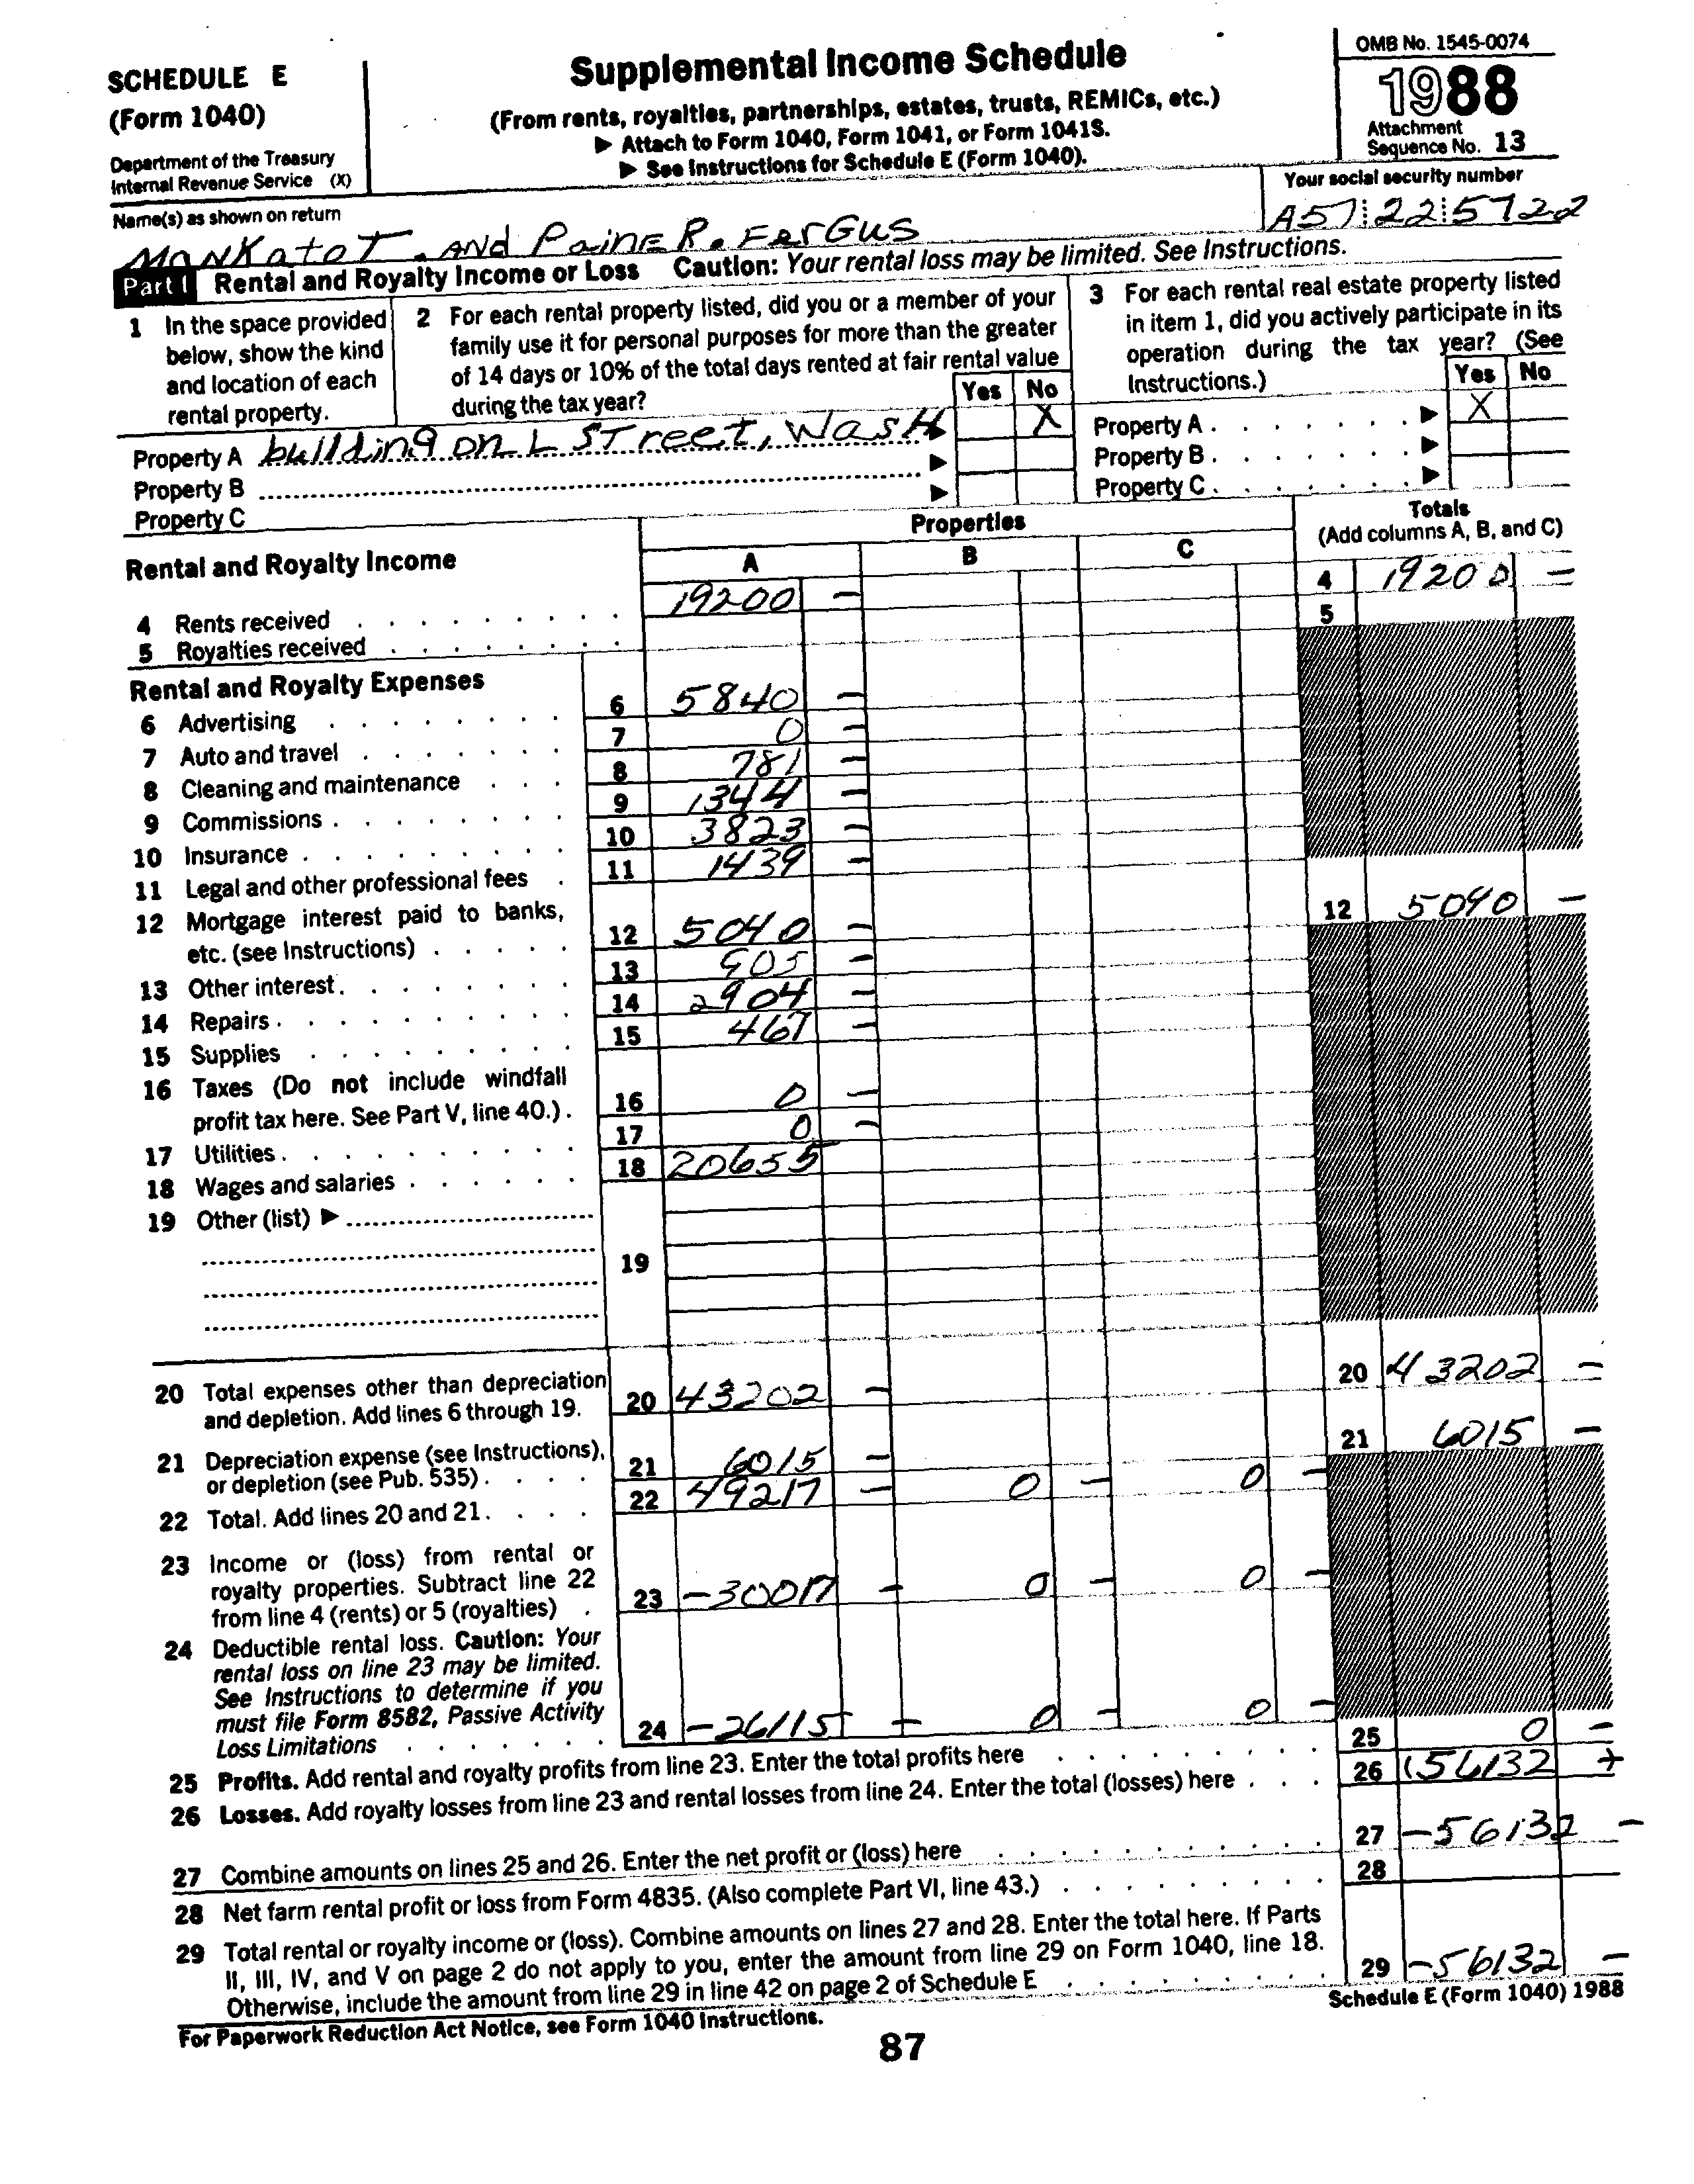 SCHEDULE E
(Form 1040)
Department of the Treasury
Internal Revenue Service (X)
Supplemental Income Schedule
(From rents, royalties, partnerships, estates, trusts, REMICs, etc.)
▶ Attach to Form 1040, Form 1041, or Form 1041S.
▶ See Instructions for Schedule E (Form 1040).
OMB No. 1545-0074
1988
Attachment
Sequence No. 13
Name(s) as shown on return
Your social security number
MANKatoT. AND PaiNE R. FerGUS
A57 22 5722
Part I Rental and Royalty Income or Loss Caution: Your rental loss may be limited. See Instructions.
1 In the space provided
below, show the kind
and location of each
rental property.
2 For each rental property listed, did you or a member of your
family use it for personal purposes for more than the greater
of 14 days or 10% of the total days rented at fair rental value
during the tax year?
Yes No
3 For each rental real estate property listed
in item 1, did you actively participate in its
operation during the tax year? (See
Instructions.)
Yes No
Property A building on L STreet, WasH ▶ X
Property B ▶
Property C ▶
Property A ▶ X
Property B ▶
Property C ▶
Rental and Royalty Income
Properties
A B C
Totals
(Add columns A, B, and C)
4 Rents received 19200 — 4 19200 —
5 Royalties received 5
Rental and Royalty Expenses
6 Advertising 6 5840 —
7 Auto and travel 7 0 —
8 Cleaning and maintenance 8 781 —
9 Commissions 9 1344 —
10 Insurance 10 3823 —
11 Legal and other professional fees 11 1439 —
12 Mortgage interest paid to banks,
etc. (see Instructions) 12 5040 — 12 5040 —
13 Other interest 13 905 —
14 Repairs 14 2904 —
15 Supplies 15 467 —
16 Taxes (Do not include windfall
profit tax here. See Part V, line 40.) 16 0 —
17 Utilities 17 0 —
18 Wages and salaries 18 20655
19 Other (list) ▶
19
20 Total expenses other than depreciation
and depletion. Add lines 6 through 19. 20 43202 — 20 43202 —
21 Depreciation expense (see Instructions),
or depletion (see Pub. 535) 21 6015 — 21 6015 —
22 Total. Add lines 20 and 21 22 49217 — 0 — 0 —
23 Income or (loss) from rental or
royalty properties. Subtract line 22
from line 4 (rents) or 5 (royalties) 23 -30017 — 0 — 0 —
24 Deductible rental loss. Caution: Your
rental loss on line 23 may be limited.
See Instructions to determine if you
must file Form 8582, Passive Activity
Loss Limitations 24 -26115 — 0 — 0 —
25 Profits. Add rental and royalty profits from line 23. Enter the total profits here 25 0 —
26 Losses. Add royalty losses from line 23 and rental losses from line 24. Enter the total (losses) here 26 (56132 +
27 Combine amounts on lines 25 and 26. Enter the net profit or (loss) here 27 -56132 —
28 Net farm rental profit or loss from Form 4835. (Also complete Part VI, line 43.) 28
29 Total rental or royalty income or (loss). Combine amounts on lines 27 and 28. Enter the total here. If Parts
II, III, IV, and V on page 2 do not apply to you, enter the amount from line 29 on Form 1040, line 18.
Otherwise, include the amount from line 29 in line 42 on page 2 of Schedule E 29 -56132 —
For Paperwork Reduction Act Notice, see Form 1040 Instructions.
Schedule E (Form 1040) 1988
87